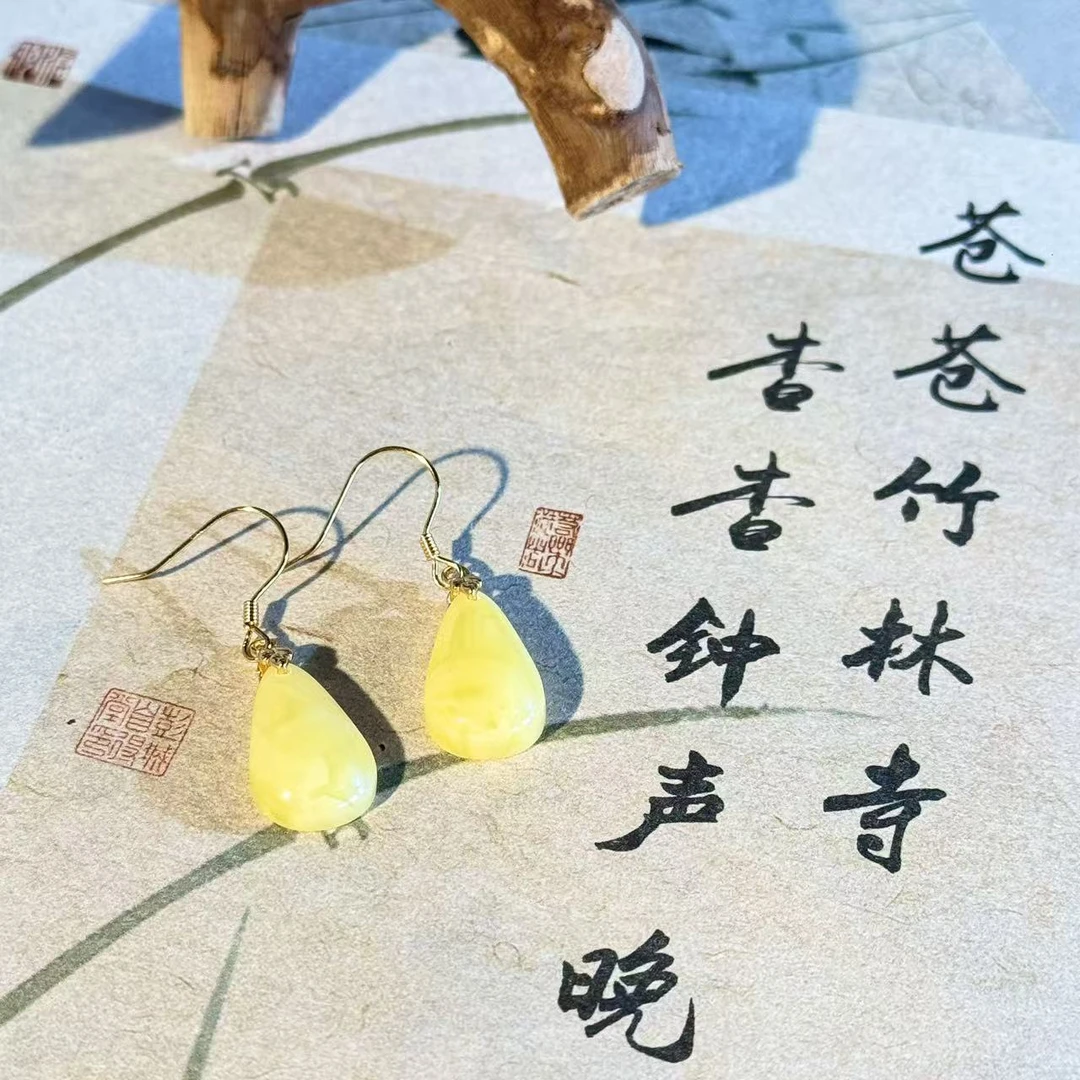 苍苍竹林寺
杳杳钟声晚